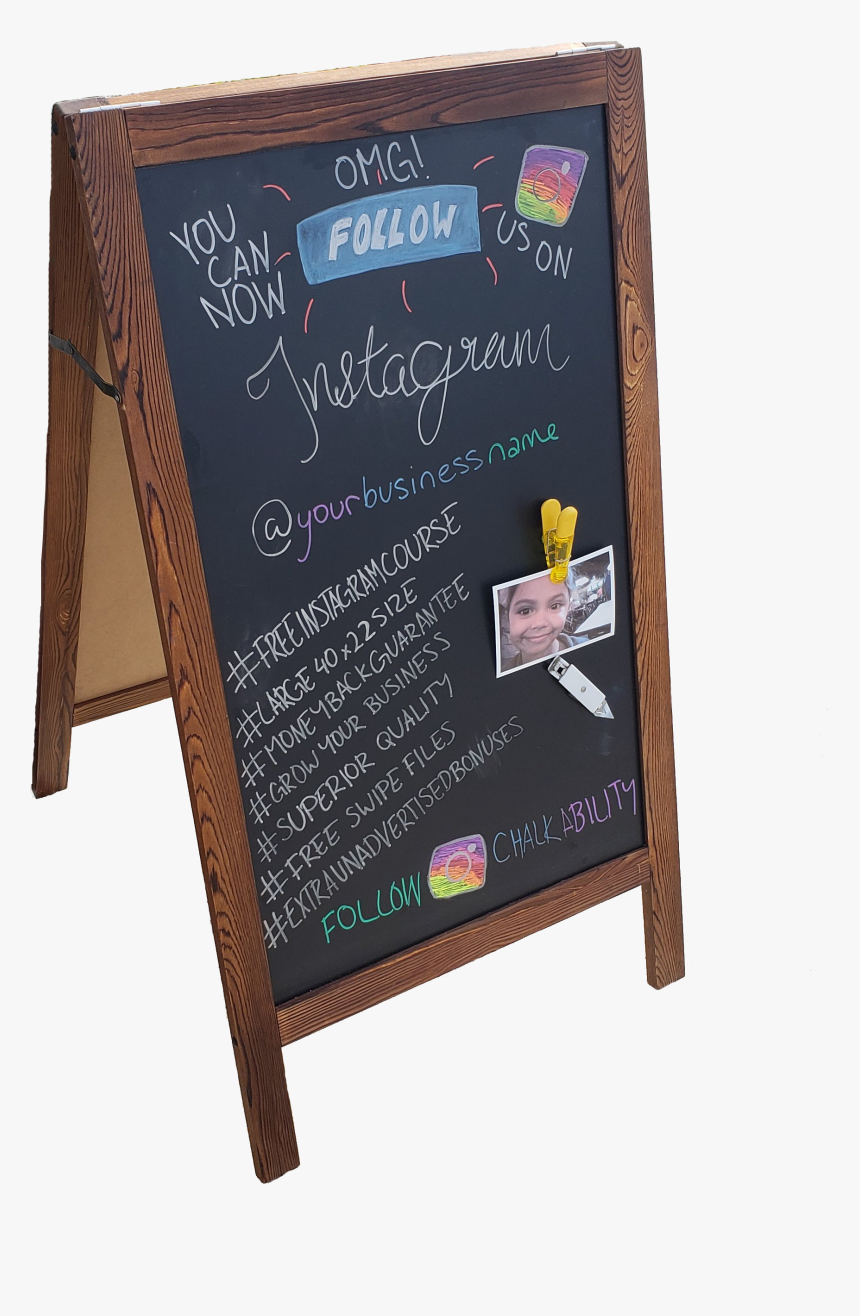 OMG!
YOU
CAN
NOW
FOLLOW
US
ON
Instagram
@yourbusinessname
#FREEINSTAGRAMCOURSE
#LARGE 40x22 SIZE
#MONEYBACKGUARANTEE
#GROW YOUR BUSINESS
#SUPERIOR QUALITY
#FREE SWIPE FILES
#EXTRAUNADVERTISEDBONUSES
FOLLOW CHALKABILITY